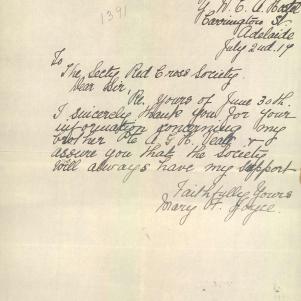 1391
Y. W. C. A.
Carrington St.
Adelaide
July 2nd. 17
To
The Secty Red Cross Society.
Dear Sir,
Re. Yours of June 30th.
I sincerely thank you for your
information concerning my
brother Pte A. J. R. death &
assure you that the Society
will always have my support
Faithfully Yours
Mary H. Joyce.